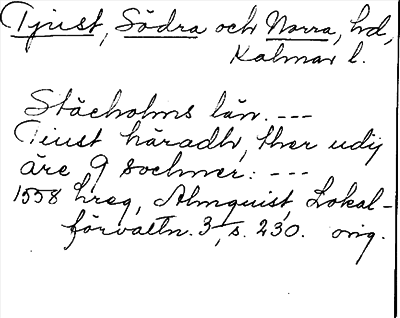 Tjust, Södra och Norra, hd,
Kalmar l.
Stächolms län. ---
Tiust häradh, ther udij
äre 9 sochner. ---
1558 hreg, Almquist, Lokal-
förvaltn. 3, s. 230. orig.